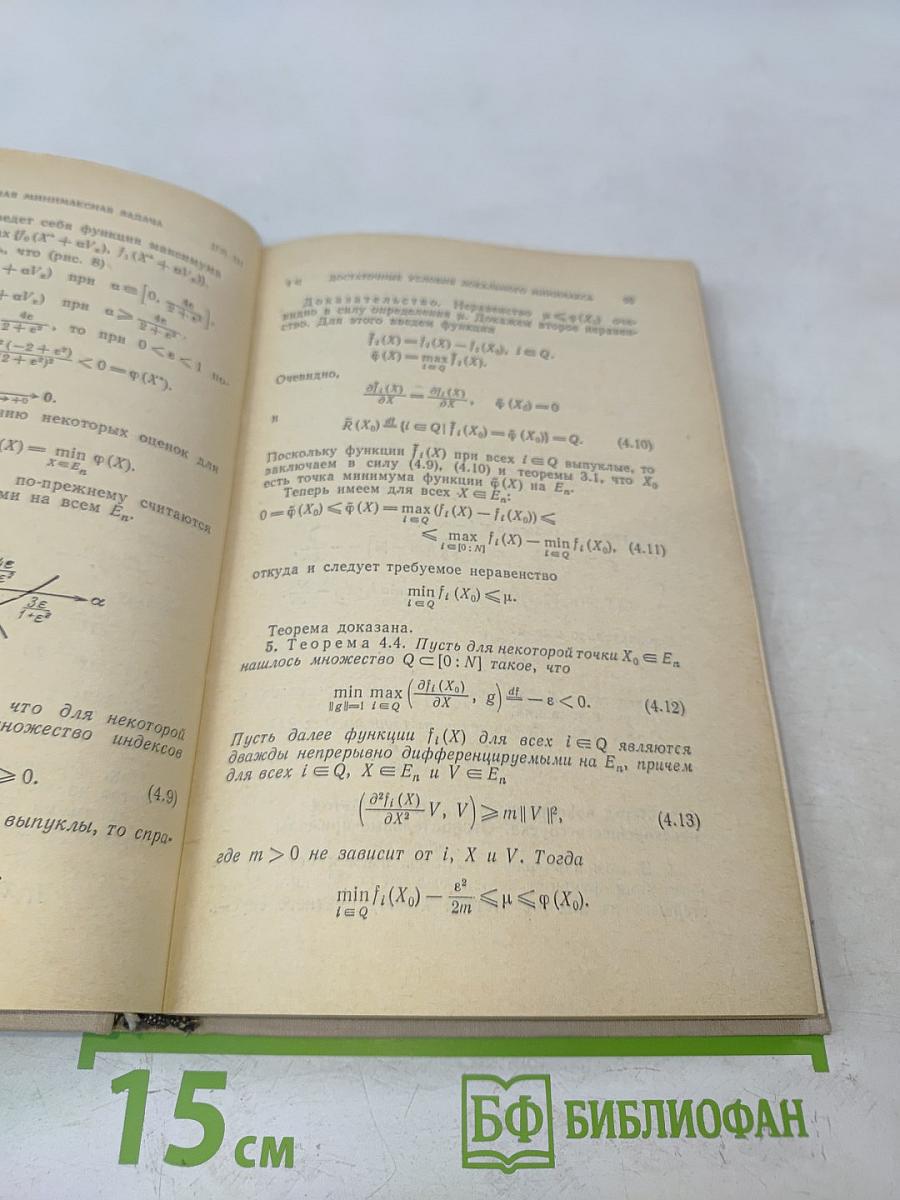 НАЯ МИНИМАКСНАЯ ЗАДАЧА
ведет себя функция максимума
что (рис. 8)
+ αVₑ) при α ∈ [0, 4ε/(2+ε²)],
+ αVₑ) при α ⩾ 4ε/(2+ε²).
4ε/(2+ε²), то при 0 < ε < 1 по-
²(−2+ε²)/(2+ε²)² < 0 = φ(X*).
→+0→ 0.
нию некоторых оценок для
(X) = min φ(X).
X∈Eₙ
по-прежнему считаются
ми на всем Eₙ.
α
3ε/(1+ε²)
что для некоторой
множество индексов
⩾ 0.
(4.9)
выпуклы, то спра-
ДОСТАТОЧНЫЕ УСЛОВИЯ ЛОКАЛЬНОГО МИНИМАКСА
Доказательство. Неравенство μ ⩽ φ(X₀) оче-
видно в силу определения μ. Докажем второе неравен-
ство. Для этого введем функции
f̄ᵢ(X) = fᵢ(X) − fᵢ(X₀), i ∈ Q.
φ̄(X) = max f̄ᵢ(X).
i∈Q
Очевидно,
∂f̄ᵢ(X)/∂X = ∂fᵢ(X)/∂X, φ̄(X₀) = 0
и
R̄(X₀) =df {i ∈ Q | f̄ᵢ(X₀) = φ̄(X₀)} = Q. (4.10)
Поскольку функции f̄ᵢ(X) при всех i ∈ Q выпуклые, то
заключаем в силу (4.9), (4.10) и теоремы 3.1, что X₀
есть точка минимума функции φ̄(X) на Eₙ.
Теперь имеем для всех X ∈ Eₙ:
0 = φ̄(X₀) ⩽ φ̄(X) = max (fᵢ(X) − fᵢ(X₀)) ⩽
i∈Q
⩽ max fᵢ(X) − min fᵢ(X₀), (4.11)
i∈[0:N] i∈Q
откуда и следует требуемое неравенство
min fᵢ(X₀) ⩽ μ.
i∈Q
Теорема доказана.
5. Теорема 4.4. Пусть для некоторой точки X₀ ∈ Eₙ
нашлось множество Q ⊂ [0 : N] такое, что
min max (∂fᵢ(X₀)/∂X, g) =df − ε < 0. (4.12)
‖g‖=1 i∈Q
Пусть далее функции fᵢ(X) для всех i ∈ Q являются
дважды непрерывно дифференцируемыми на Eₙ, причем
для всех i ∈ Q, X ∈ Eₙ и V ∈ Eₙ
(∂²fᵢ(X)/∂X² V, V) ⩾ m‖V‖², (4.13)
где m > 0 не зависит от i, X и V. Тогда
min fᵢ(X₀) − ε²/2m ⩽ μ ⩽ φ(X₀).
i∈Q
15 см
БФ БИБЛИОФАН